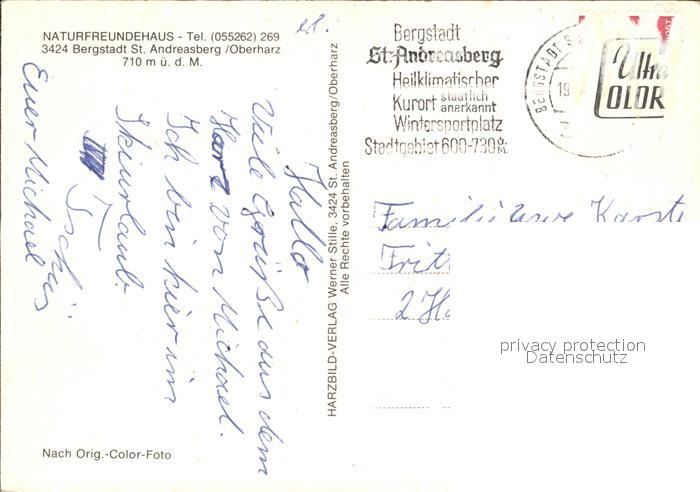 NATURFREUNDEHAUS - Tel. (055262) 269
3424 Bergstadt St. Andreasberg /Oberharz
710 m ü. d. M.
Hallo
Viele Grüße aus dem
Harz von Michael.
Ich bin hier im
Skiurlaub.
Tschüs
Euer Michael
Nach Orig.-Color-Foto
HARZBILD-VERLAG Werner Stille, 3424 St. Andreasberg/Oberharz
Alle Rechte vorbehalten
Bergstadt
St. Andreasberg
Heilklimatischer
Kurort staatlich anerkannt
Wintersportplatz
Stadtgebiet 600-730 M.
BERGSTADT S
19
Ultra
OLOR
Familie Uwe
Frit
2 Ha
privacy protection
Datenschutz